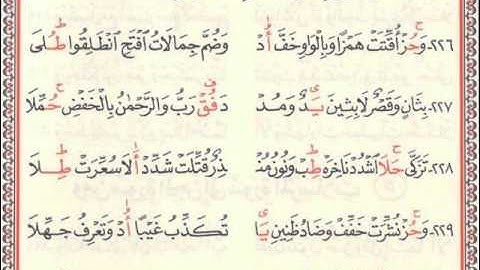 ٢٢٦- وَحُزْ أُقِّتَتْ هَمْزًا وَبِالْوَاوِ خَفَّ أُدْ وَضُمَّ جِمَالَاتُ افْتَحِ انْطَلِقُوا طُلَى
٢٢٧- بِثَانٍ وَقَصْرُ لَابِثِينَ يَدٌ وَمُدْ دَ فُقْ رَبُّ وَالرَّحْمٰنُ بِالْخَفْضِ حُمِّلَا
٢٢٨- تَزَكَّى حَلَا اشْدُدْ نَاخِرَهْ طِبْ وَنُونُ مُنْـ ذِرُ قُتِّلَتْ شَدِّدْ أَلَا سُعِّرَتْ طِلَا
٢٢٩- وَحُزْ نُشِّرَتْ خَفِّفْ وَضَادُ ظَنِينِ يَا تُكَذِّبُ غَيْبًا أُدْ وَتَعْرِفُ جَهِّلَا